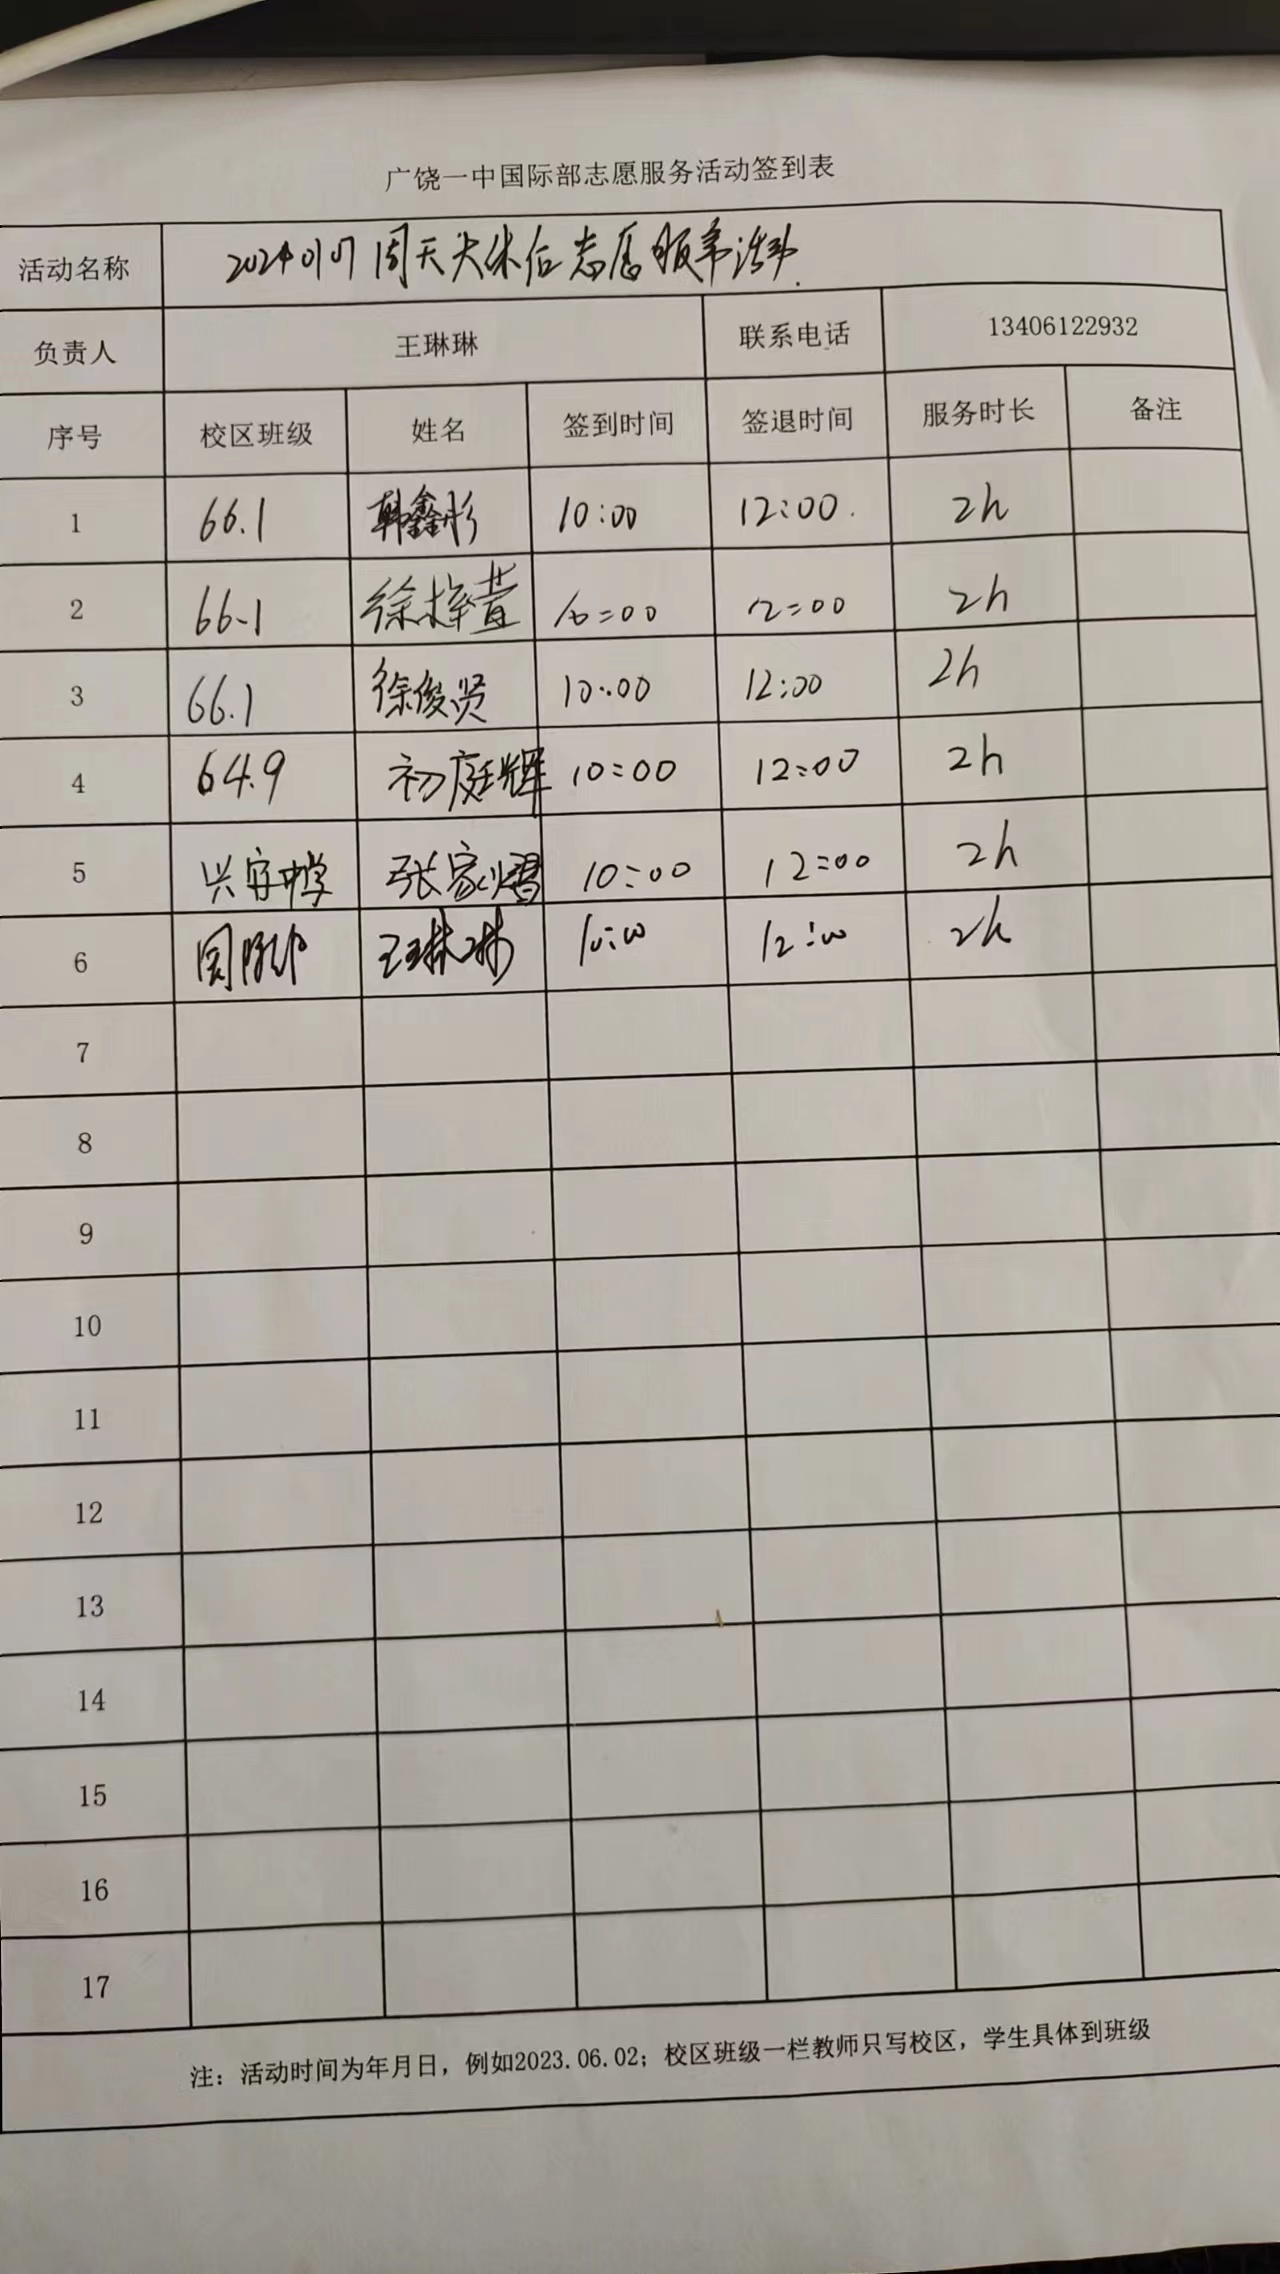 广饶一中国际部志愿服务活动签到表
活动名称 20240107周天大休后志愿服务活动.
负责人 王琳琳 联系电话 13406122932
序号 校区班级 姓名 签到时间 签退时间 服务时长 备注
1 66.1 韩鑫彤 10:00 12:00. 2h
2 66.1 徐梓萱 10:00 12:00 2h
3 66.1 徐俊贤 10:00 12:00 2h
4 64.9 初庭辉 10:00 12:00 2h
5 兴安中学 张家熠 10:00 12:00 2h
6 国际部 王琳琳 10:00 12:00 2h
7
8
9
10
11
12
13
14
15
16
17
注：活动时间为年月日，例如2023.06.02；校区班级一栏教师只写校区，学生具体到班级